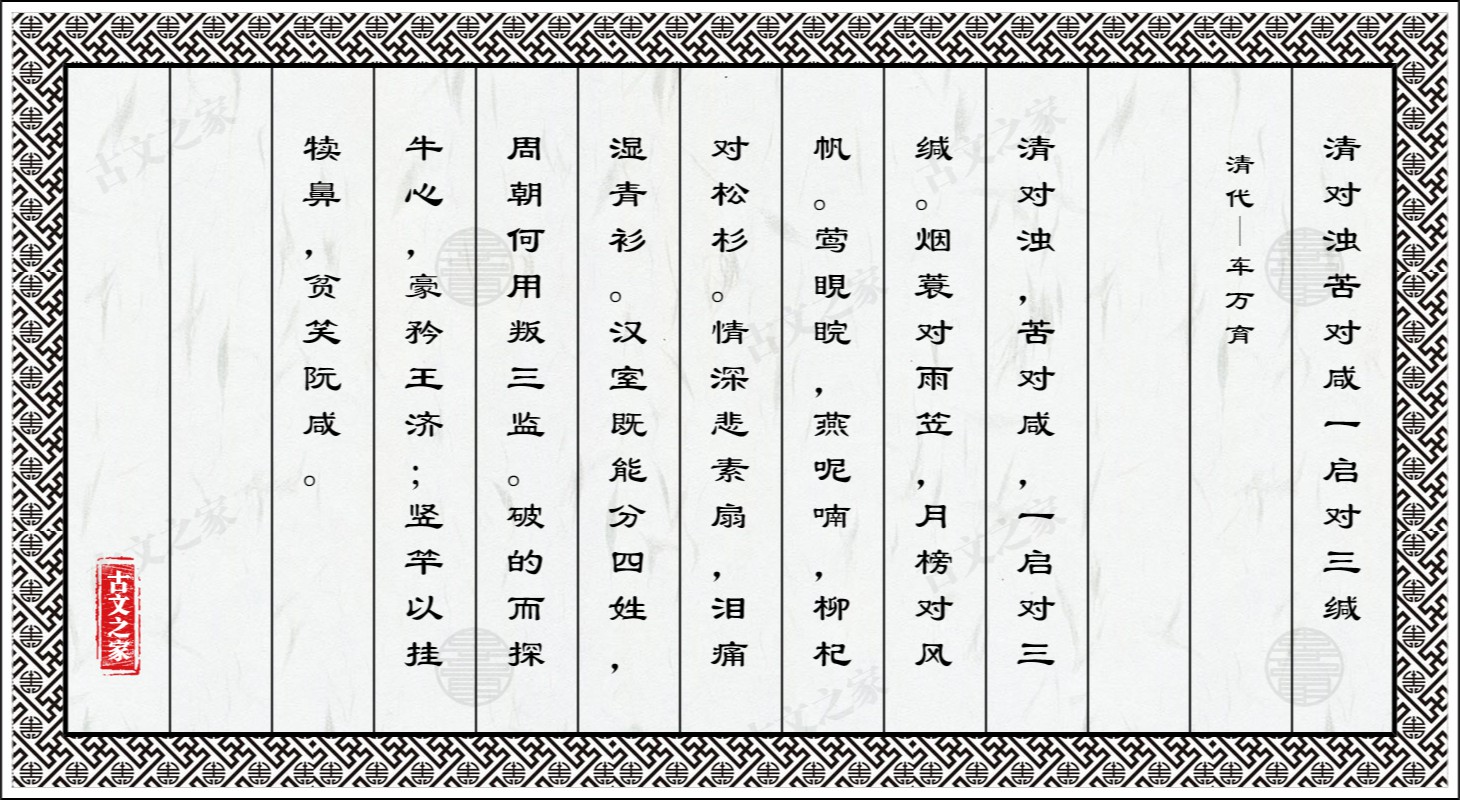 清对浊苦对咸一启对三缄
清代—车万育
清对浊，苦对咸，一启对三
缄。烟蓑对雨笠，月榜对风
帆。莺睍睆，燕呢喃，柳杞
对松杉。情深悲素扇，泪痛
湿青衫。汉室既能分四姓，
周朝何用叛三监。破的而探
牛心，豪矜王济；竖竿以挂
犊鼻，贫笑阮咸。
古文之家
古文之家
古文之家
古文之家
古文之家
古文之家
古文之家